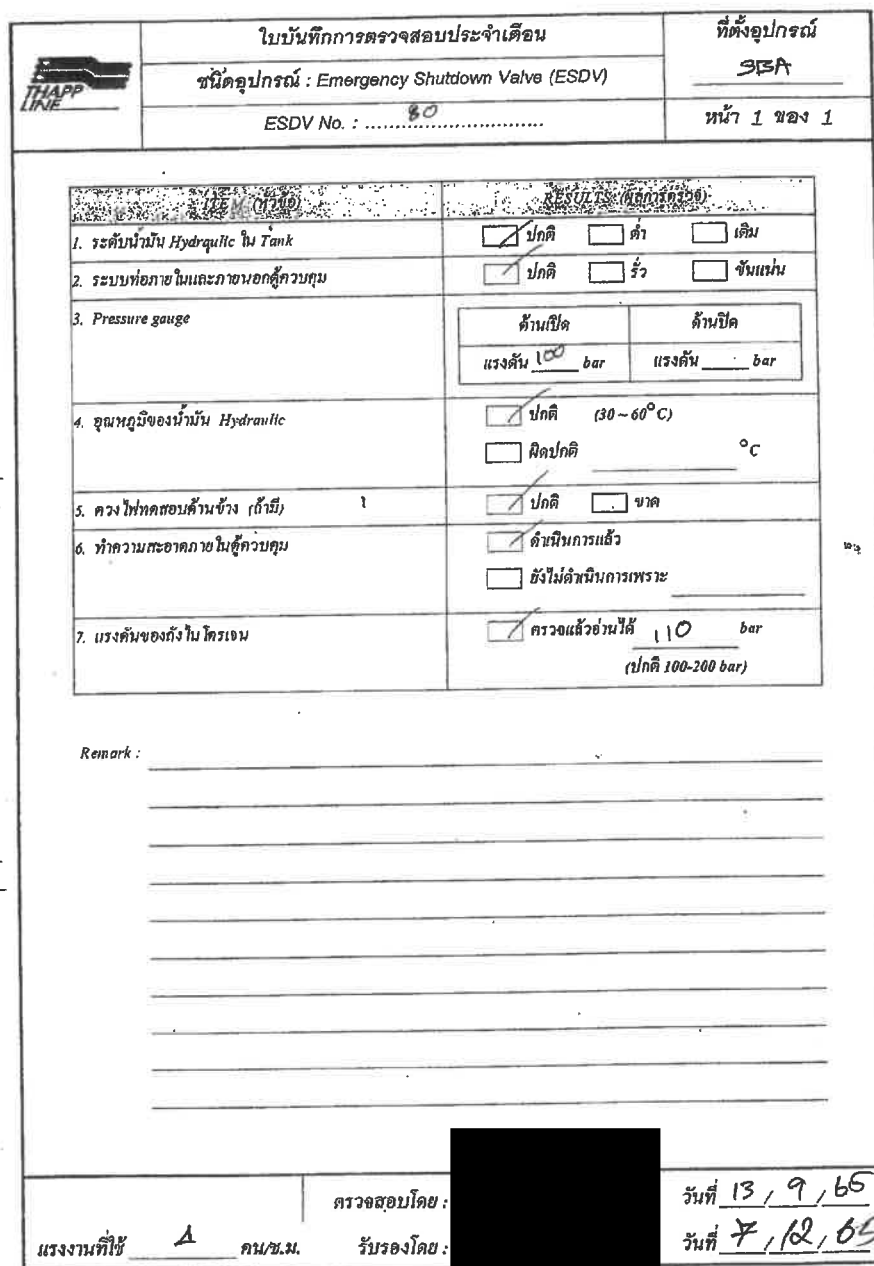 ใบบันทึกการตรวจสอบประจำเดือน
ที่ตั้งอุปกรณ์
THAPP LINE
ชนิดอุปกรณ์ : Emergency Shutdown Valve (ESDV)
SBA
ESDV No. : 80
หน้า 1 ของ 1
ITEM (หัวข้อ) RESULTS (ผลการตรวจ)
1. ระดับน้ำมัน Hydraulic ใน Tank ปกติ ต่ำ เติม
2. ระบบท่อภายในและภายนอกตู้ควบคุม ปกติ รั่ว ขันแน่น
3. Pressure gauge
ด้านเปิด ด้านปิด
แรงดัน 100 bar แรงดัน bar
4. อุณหภูมิของน้ำมัน Hydraulic ปกติ (30 ~ 60°C)
ผิดปกติ °C
5. ดวงไฟทดสอบด้านข้าง (ถ้ามี) ปกติ ขาด
6. ทำความสะอาดภายในตู้ควบคุม ดำเนินการแล้ว
ยังไม่ดำเนินการเพราะ
7. แรงดันของถังไนโตรเจน ตรวจแล้วอ่านได้ 110 bar
(ปกติ 100-200 bar)
Remark :
ตรวจสอบโดย : วันที่ 13 / 9 / 65
แรงงานที่ใช้ คน/ช.ม. รับรองโดย : วันที่ 7 / 12 / 65